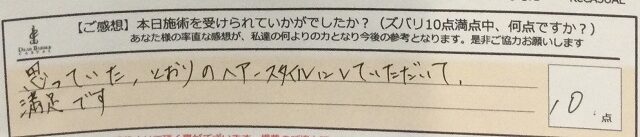 【ご感想】本日施術を受けられていかがでしたか？（ズバリ10点満点中、何点ですか？）
あなた様の率直な感想が、私達の何よりの力となり今後の参考となります。是非ご協力お願いします
思っていた、とおりのヘアースタイルにしていただいて、
満足です
10点